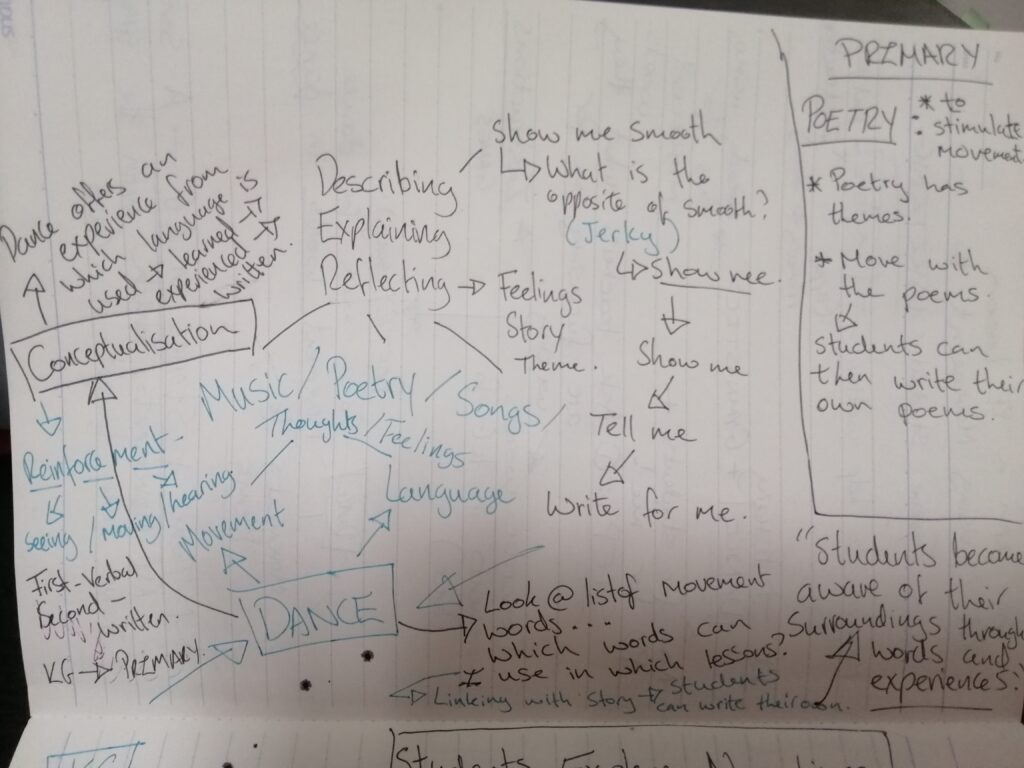 Dance offers an
experience from
which language is
used → learned →
experienced →
written.
Conceptualisation
Reinforcement -
seeing / moving / hearing
First - Verbal
Second -
written.
KG → PRIMARY.
Describing
Explaining
Reflecting → Feelings
Story
Theme.
Show me smooth
↳ What is the
opposite of smooth?
(Jerky)
↳ Show me.
Show me
Tell me
Write for me.
Music / Poetry / Songs /
Thoughts / Feelings
Movement
Language
DANCE
Look @ list of movement
words...
which words can
* use in which lessons?
Linking with Story → Students
can write their own.
PRIMARY
POETRY : * to
stimulate
movement
* Poetry has
themes.
* Move with
the poems.
Students can
then write their
own poems.
"Students become
aware of their
Surroundings through
words and
experiences."
Students